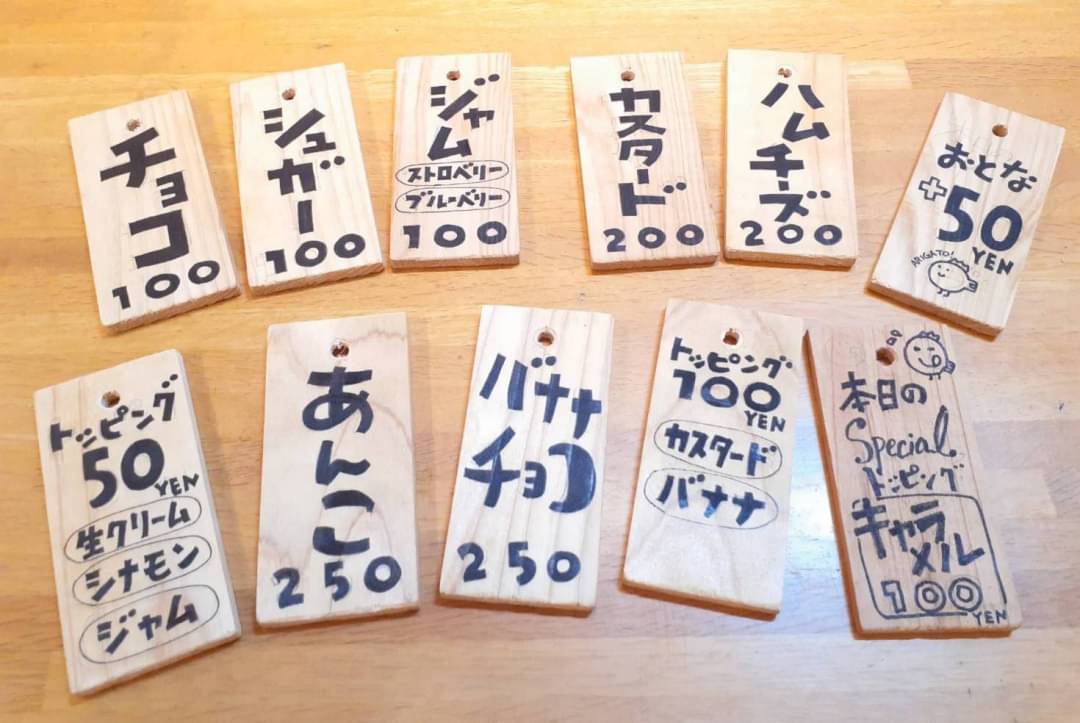 チョコ
100
シュガー
100
ジャム
ストロベリー
ブルーベリー
100
カスタード
200
ハムチーズ
200
おとな
+50
YEN
ARIGATO!
トッピング
50
YEN
生クリーム
シナモン
ジャム
あんこ
250
バナナ
チョコ
250
トッピング
100
YEN
カスタード
バナナ
本日の
Special
トッピング
キャラ
メル
100
YEN